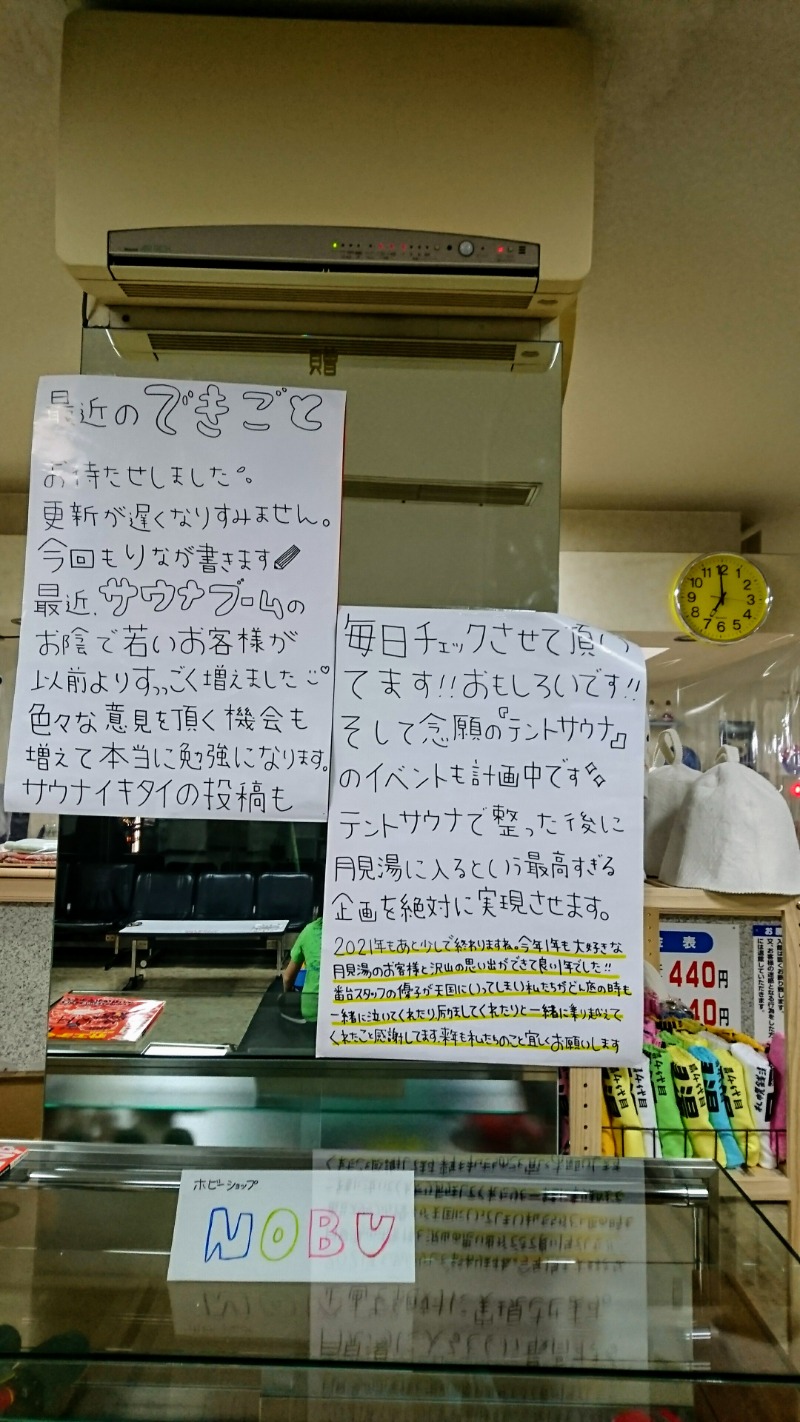 贈
最近のできごと
お待たせしました。
更新が遅くなりすみません。
今回もりなが書きます
最近、サウナブームの
お陰で若いお客様が
以前よりすっごく増えました
色々な意見を頂く機会も
増えて本当に勉強になります。
サウナイキタイの投稿も
毎日チェックさせて頂い
てます!!おもしろいです!!
そして念願の『テントサウナ』
のイベントも計画中です
テントサウナで整った後に
月見湯に入るという最高すぎる
企画を絶対に実現させます。
2021年もあと少しで終わりますね。今年1年も大好きな
月見湯のお客様と沢山の思い出ができて良い1年でした!!
番台スタッフの優子が天国にいってしまい私たちがどん底の時も
一緒に泣いてくれたり励ましてくれたりと一緒に乗り越えて
くれたこと感謝してます。来年も私たちのこと宜しくお願いします
12 1 2 3 4 5 6 7 8 9 10 11
表
440円
0円
ホビーショップ
NOBU